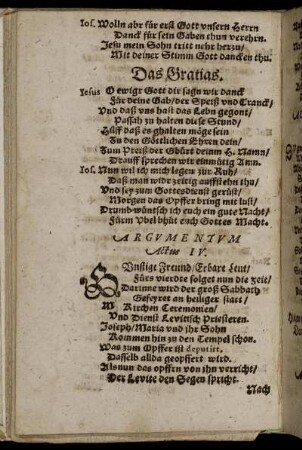 Jos. Wolln abr für erst Gott vnsern Herrn
Danck für sein Gaben thun verehrn.
Jesu mein Sohn tritt nehr herzu/
Mit deiner Stimm Gott dancken thu.
Das Gratias.
Jesus O ewigr Gott dir sagn wir danck
Für deine Gab/ der Speiß vnd Tranck/
Vnd daß vns hast das Lebn gegont/
Passah zu halten diese Stund/
Hilff daß es ghalten möge sein
In den Göttlichen Ehren dein/
Zum Preiß der Gbürt deinm H. Namn/
Drauff sprechen wir einmütig Amn.
Jos. Nun wil ich mich legen zur Ruh/
Daß man widr zeitig auffstehn thu/
Vnd sey zum Gottesdienst gerüst/
Morgen das Opffer bring mit lust/
Drumb wünsch ich euch ein gute Nacht/
Fürm Vbel bhüt euch Gottes Macht.
ARGVMENTVM
Actus IV.
GVnstige Freund/ Erbare Leut/
Fürs vierdte folget nun die zeit/
Darinne wird der groß Sabbath
Gefeyret an heiliger statt/
Mit Kirchen Ceremonien/
Vnd Dienst Levitisch Priesteren.
Joseph/ Maria vnd ihr Sohn
Kommen hin zu den Tempel schon.
Was zum Opffer ist deputirt.
Dasselb allda geopffert wird.
Als nun das opffrn von ihn verricht/
Der Levite den Segen spricht.
Nach